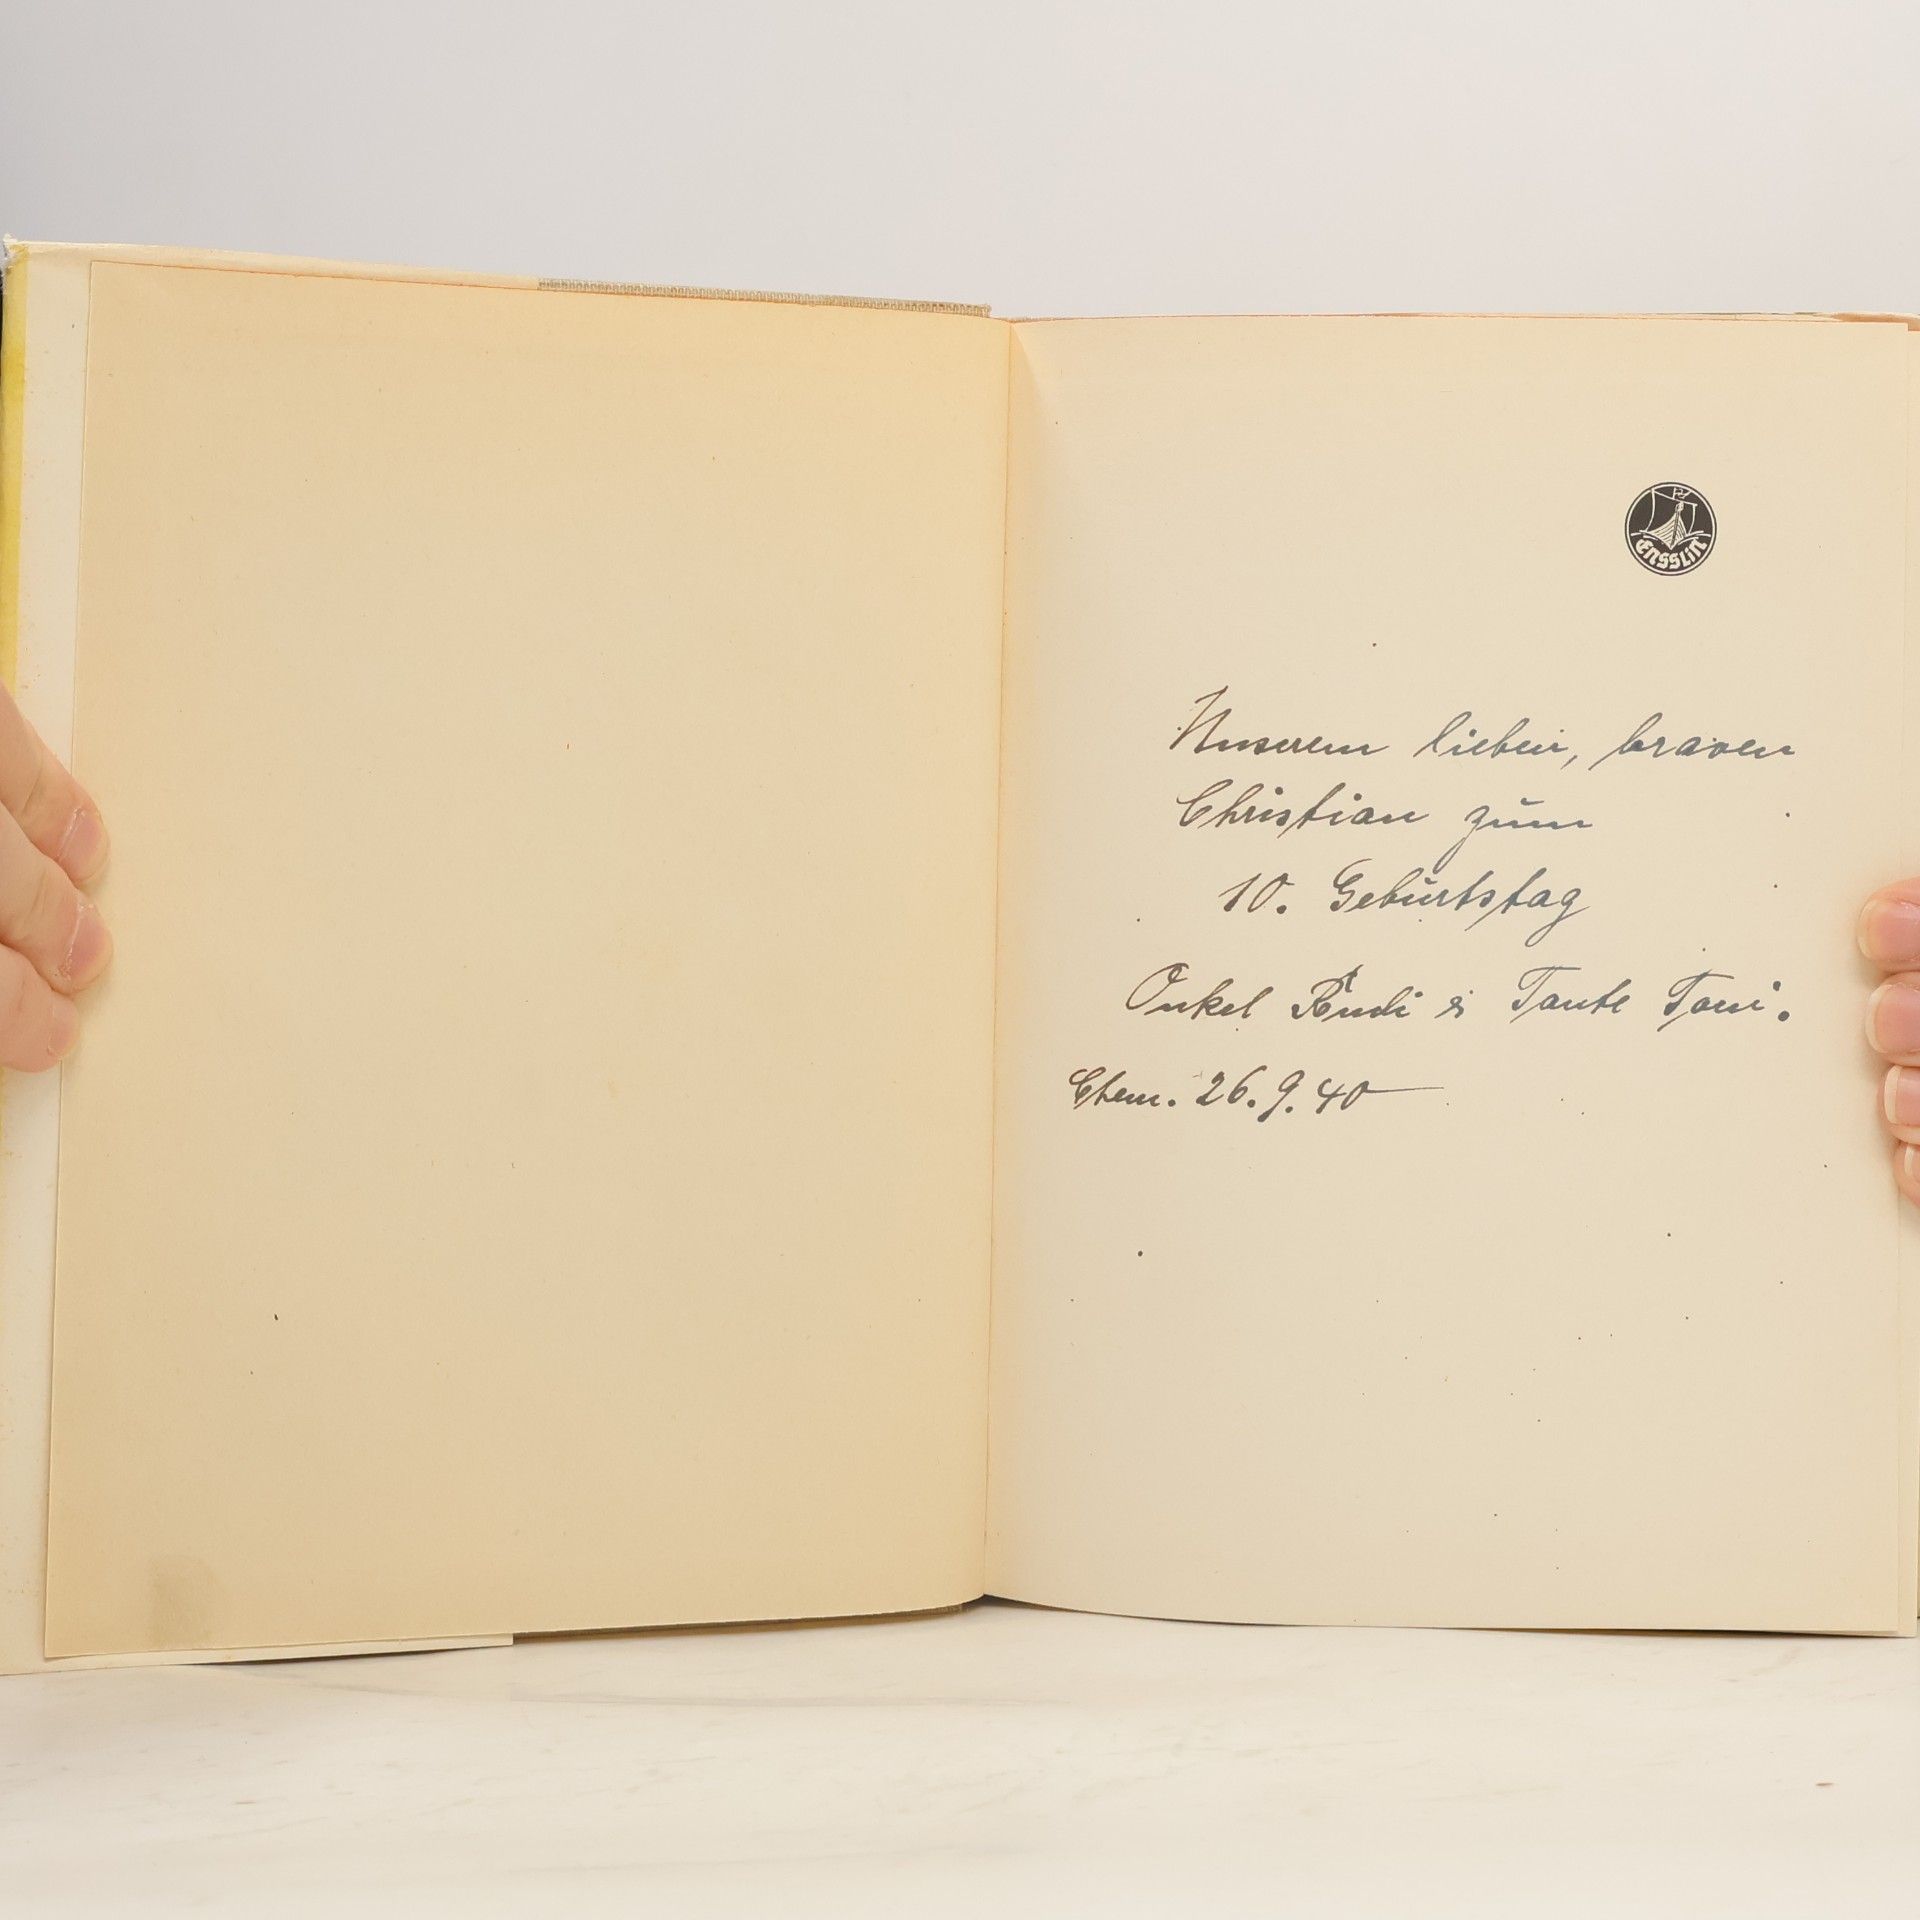 Ensslin
Unserem lieben, braven
Christian zum
10. Geburtstag
Onkel Rudi & Tante Toni.
Chem. 26.9.40